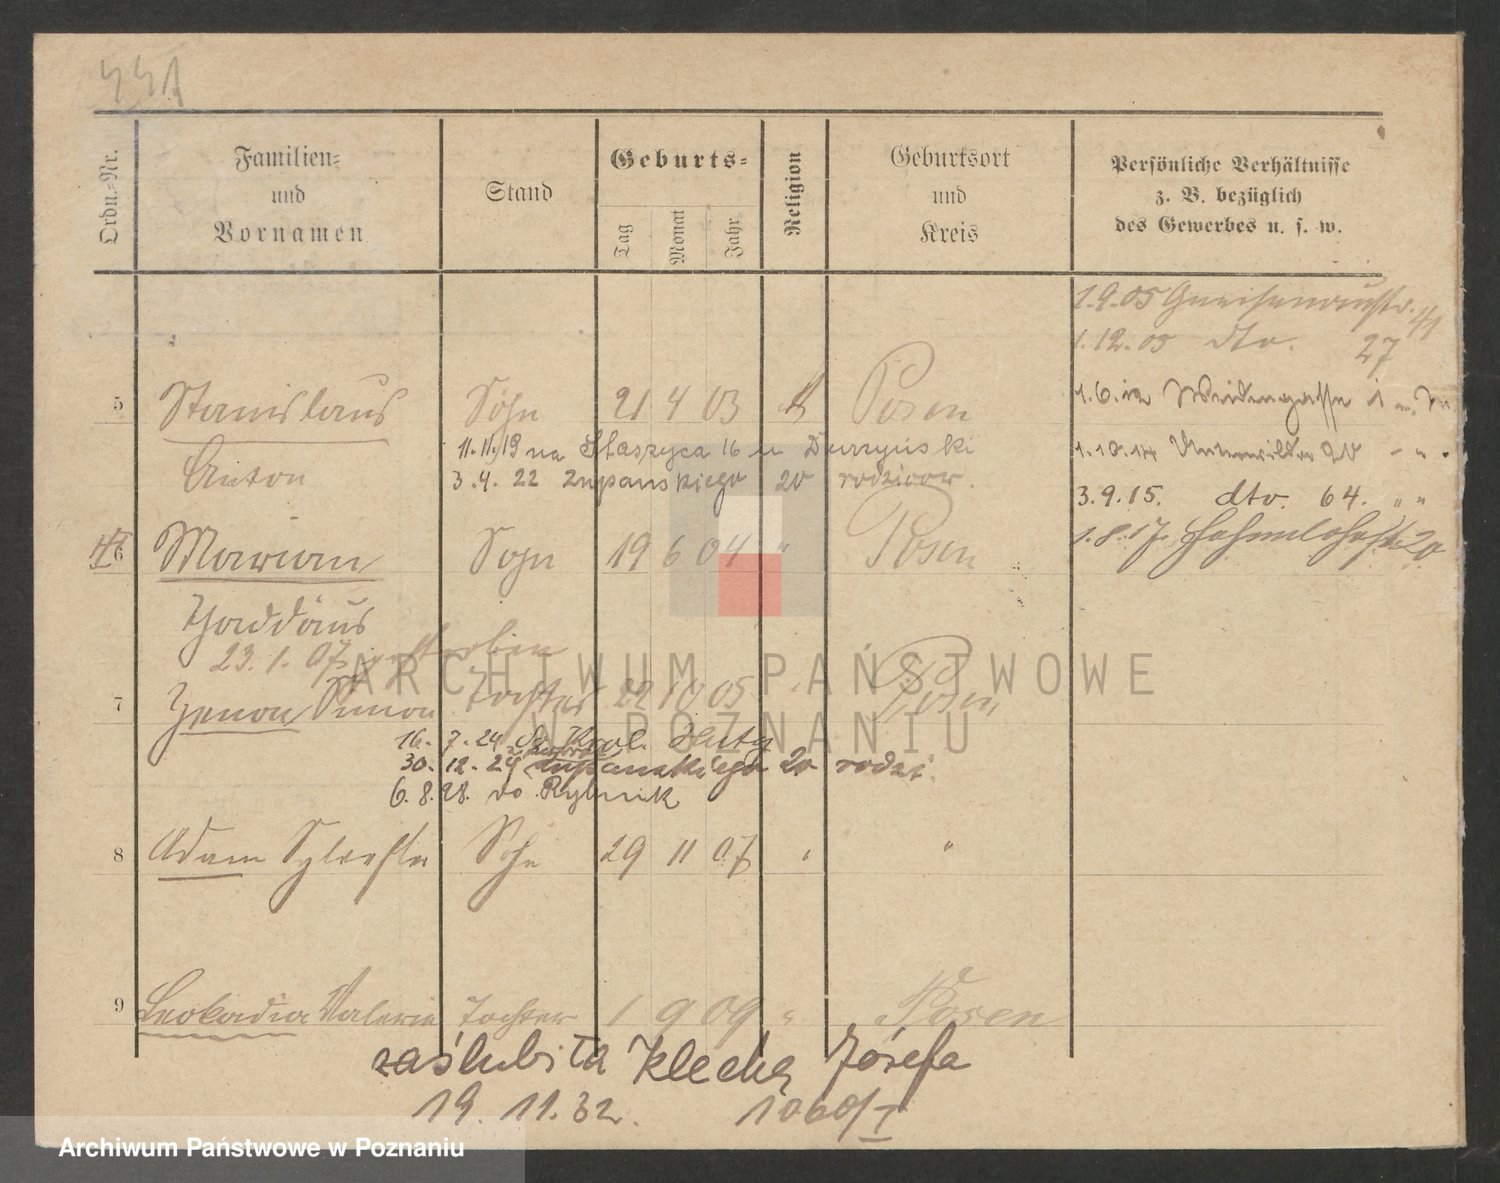 Ordn.=Nr.
Familien=
und
Vornamen
Stand
Geburts=
Tag
Monat
Jahr
Religion
Geburtsort
und
Kreis
Persönliche Verhältnisse
z. B. bezüglich
des Gewerbes u. s. w.
1.9.05 Gneisenaustr. 41
1.12.05 dto. 27
5 Stanislaus Sohn 21 4 03 Posen
1.6.12
Anton
11.11.19 na Staszyca 16 u Durzyński
3.4.22 Żupańskiego 20 rodziców.
1.10.14
3.9.15. dto. 64. " "
6 Marian Sohn 19 6 04 " Posen
1.8.17. 20
Thaddäus
23.1.07 gestorben
7 Zenon Simon Tochter 22 10 05 " Posen
16. 7. 24 do Król. Huty
30. 12. 24 Żupańskiego 20 rodzi.
6. 8. 28. do Rybnik
8 Adam Sylvester Sohn 29 11 07 " "
9 Leokadia Valerie Tochter 1 9 09 " Posen
zaślubiła Klechą Józefa
19. 11. 32. 1060/I
ARCHIWUM PAŃSTWOWE
W POZNANIU
Archiwum Państwowe w Poznaniu